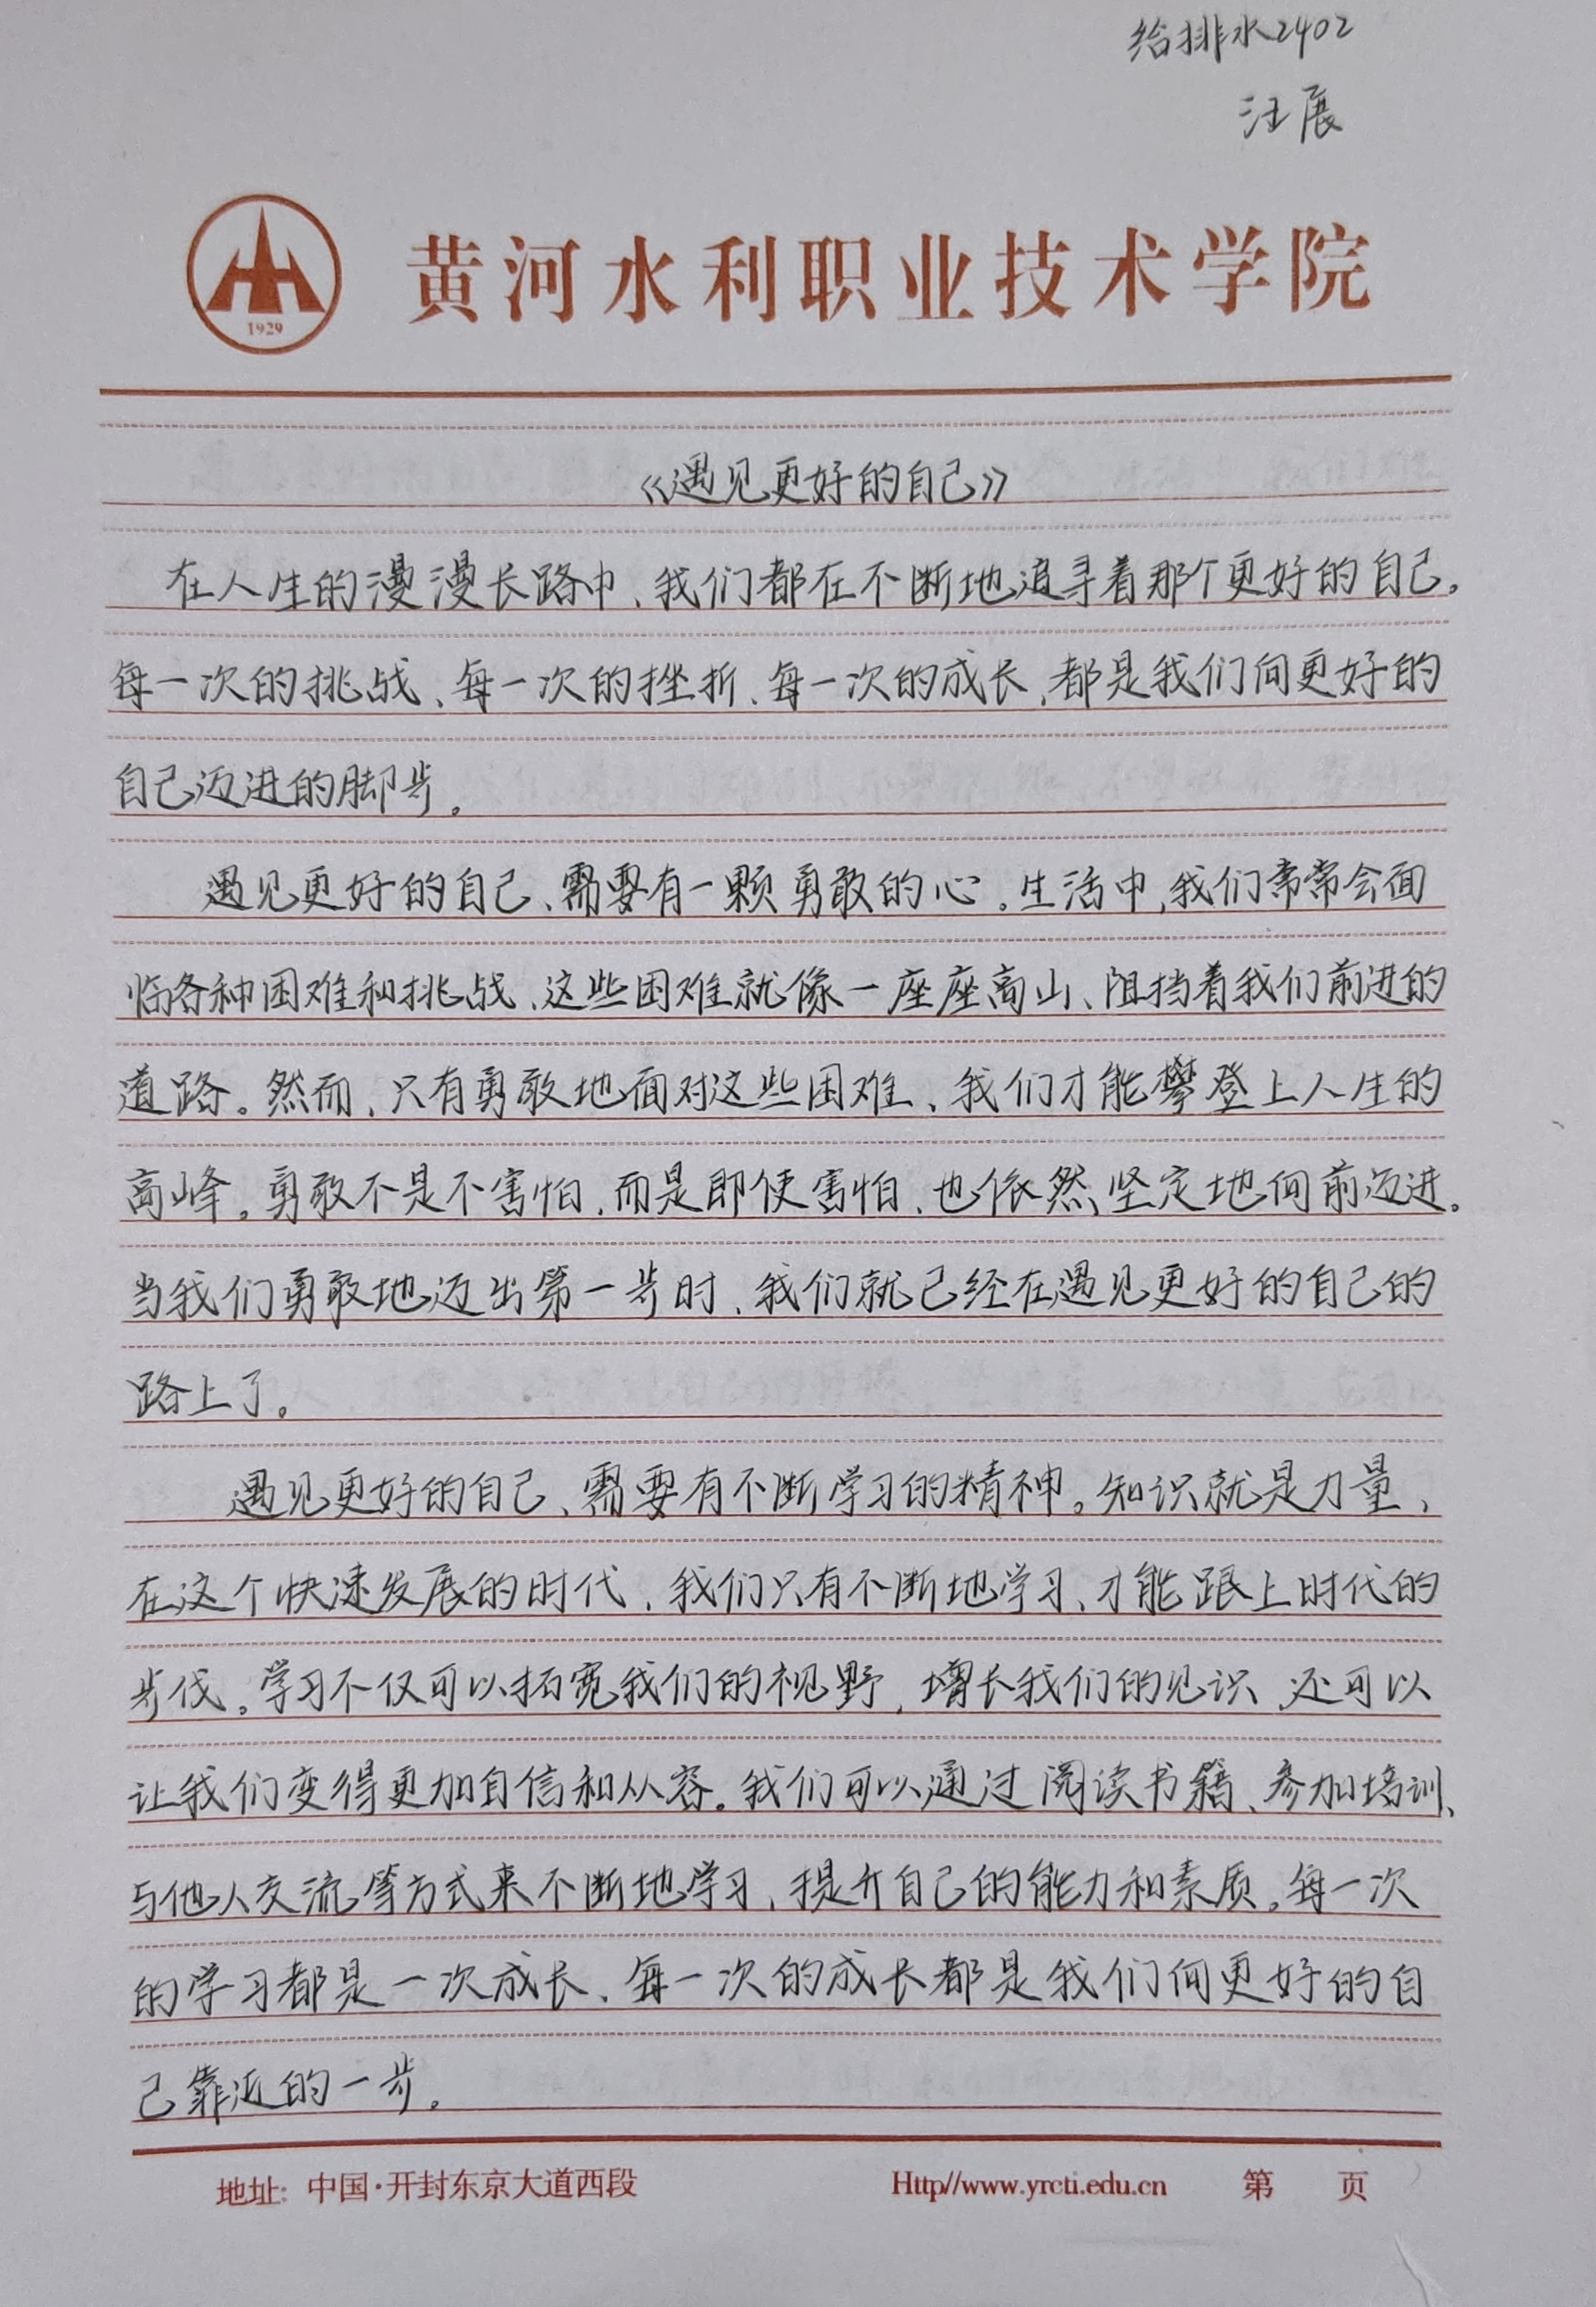 给排水2402
汪展
1929
黄河水利职业技术学院
《遇见更好的自己》
在人生的漫漫长路中、我们都在不断地追寻着那个更好的自己。
每一次的挑战、每一次的挫折、每一次的成长,都是我们向更好的
自己迈进的脚步。
遇见更好的自己、需要有一颗勇敢的心。生活中,我们常常会面
临各种困难和挑战、这些困难就像一座座高山、阻挡着我们前进的
道路。然而、只有勇敢地面对这些困难、我们才能攀登上人生的
高峰。勇敢不是不害怕,而是即使害怕、也依然坚定地向前迈进。
当我们勇敢地迈出第一步时、我们就已经在遇见更好的自己的
路上了。
遇见更好的自己、需要有不断学习的精神。知识就是力量、
在这个快速发展的时代、我们只有不断地学习、才能跟上时代的
步伐。学习不仅可以拓宽我们的视野,增长我们的见识、还可以
让我们变得更加自信和从容。我们可以通过阅读书籍、参加培训、
与他人交流等方式来不断地学习、提升自己的能力和素质。每一次
的学习都是一次成长、每一次的成长都是我们向更好的自
己靠近的一步。
地址:中国·开封东京大道西段 Http//www.yrcti.edu.cn 第 页